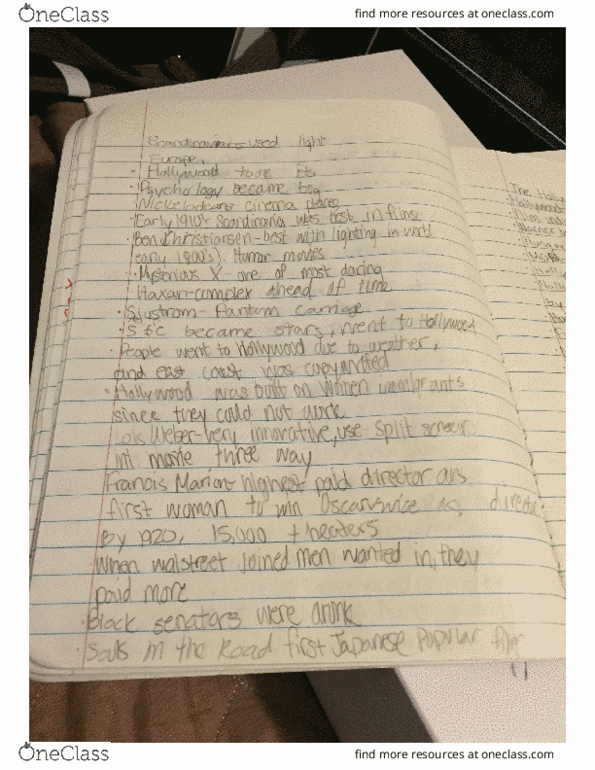 OneClass
find more resources at oneclass.com
Scandinavians used light
Europe.
· Hollywood took its
· Psychology became big
Nickelodeons cinema places
· Early 1910's Scandinavia was best in films
Ben Christiansen - best with lighting in world
early 1900's). Human movies
· Mysterious X - one of most daring
· Haxan - complex ahead of time
· Sjostrom - Fantom Carriage
· S & C became stars, went to Hollywood
· People went to Hollywood due to weather,
and east coast was copyrighted
· Hollywood was built on women immigrants
since they could not work
Lois Weber - very innovative, use split screen
in movie three way
Francis Marion - highest paid director
first woman to win Oscar twice as director
By 1920, 15,000 theaters
When walstreet joined men wanted in, they
paid more
· Black senators were
· Souls in the Road first Japanese popular film
The Holly
Hollywood
Warner
OneClass
find more resources at oneclass.com